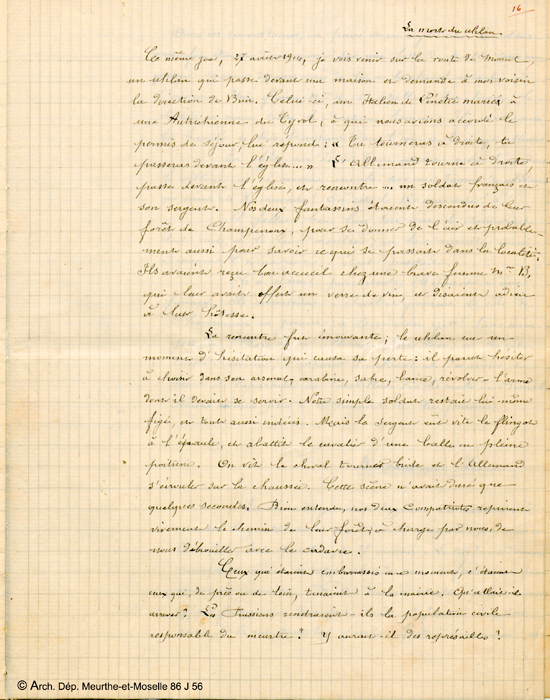 16
La mort du uhlan.
Ce même jour, 27 août 1914, je vois venir sur la route de Moncel,
un uhlan qui passe devant ma maison et demande à mon voisin
la direction de Brin. Celui-ci, un Italien de Vénétie marié à
une Autrichienne du Tyrol, à qui nous avions accordé le
permis de séjour, lui répond : « Tu tourneras à droite, tu
passeras devant l'église... » L'Allemand tourne à droite,
passe devant l'église, et rencontre ... un soldat français et
son sergent. Nos deux fantassins étaient descendus de leur
forêt de Champenoux, pour se donner de l'air et probable-
ment aussi pour savoir ce qui se passait dans la localité.
Ils avaient reçu bon accueil chez une brave femme Mme
qui leur avait offert un verre de vin, et disaient adieu
à leur hôtesse.
La rencontre fut émouvante ; le uhlan eut un
moment d'hésitation qui causa sa perte : il parut hésiter
à choisir dans son arsenal, carabine, sabre, lance, révolver - l'arme
dont il devait se servir. Notre simple soldat restait lui-même
figé, et tout aussi indécis. Mais le sergent eut vite le flingot
à l'épaule, et abattit le cavalier d'une balle en pleine
poitrine. On vit le cheval tourner bride et l'Allemand
s'écrouler sur la chaussée. Cette scène n'avait duré que
quelques secondes. Bien entendu, nos deux compatriotes reprirent
vivement le chemin de leur forêt, à charge par nous, de
nous débrouiller avec le cadavre.
Ceux qui étaient embarrassés en ce moment, c'étaient
ceux qui, de près ou de loin, tenaient à la mairie. Qu'allait-il
arriver? Les Prussiens rendraient-ils la population civile
responsable du meurtre? Y aurait-il des représailles?
© Arch. Dép. Meurthe-et-Moselle 86 J 56